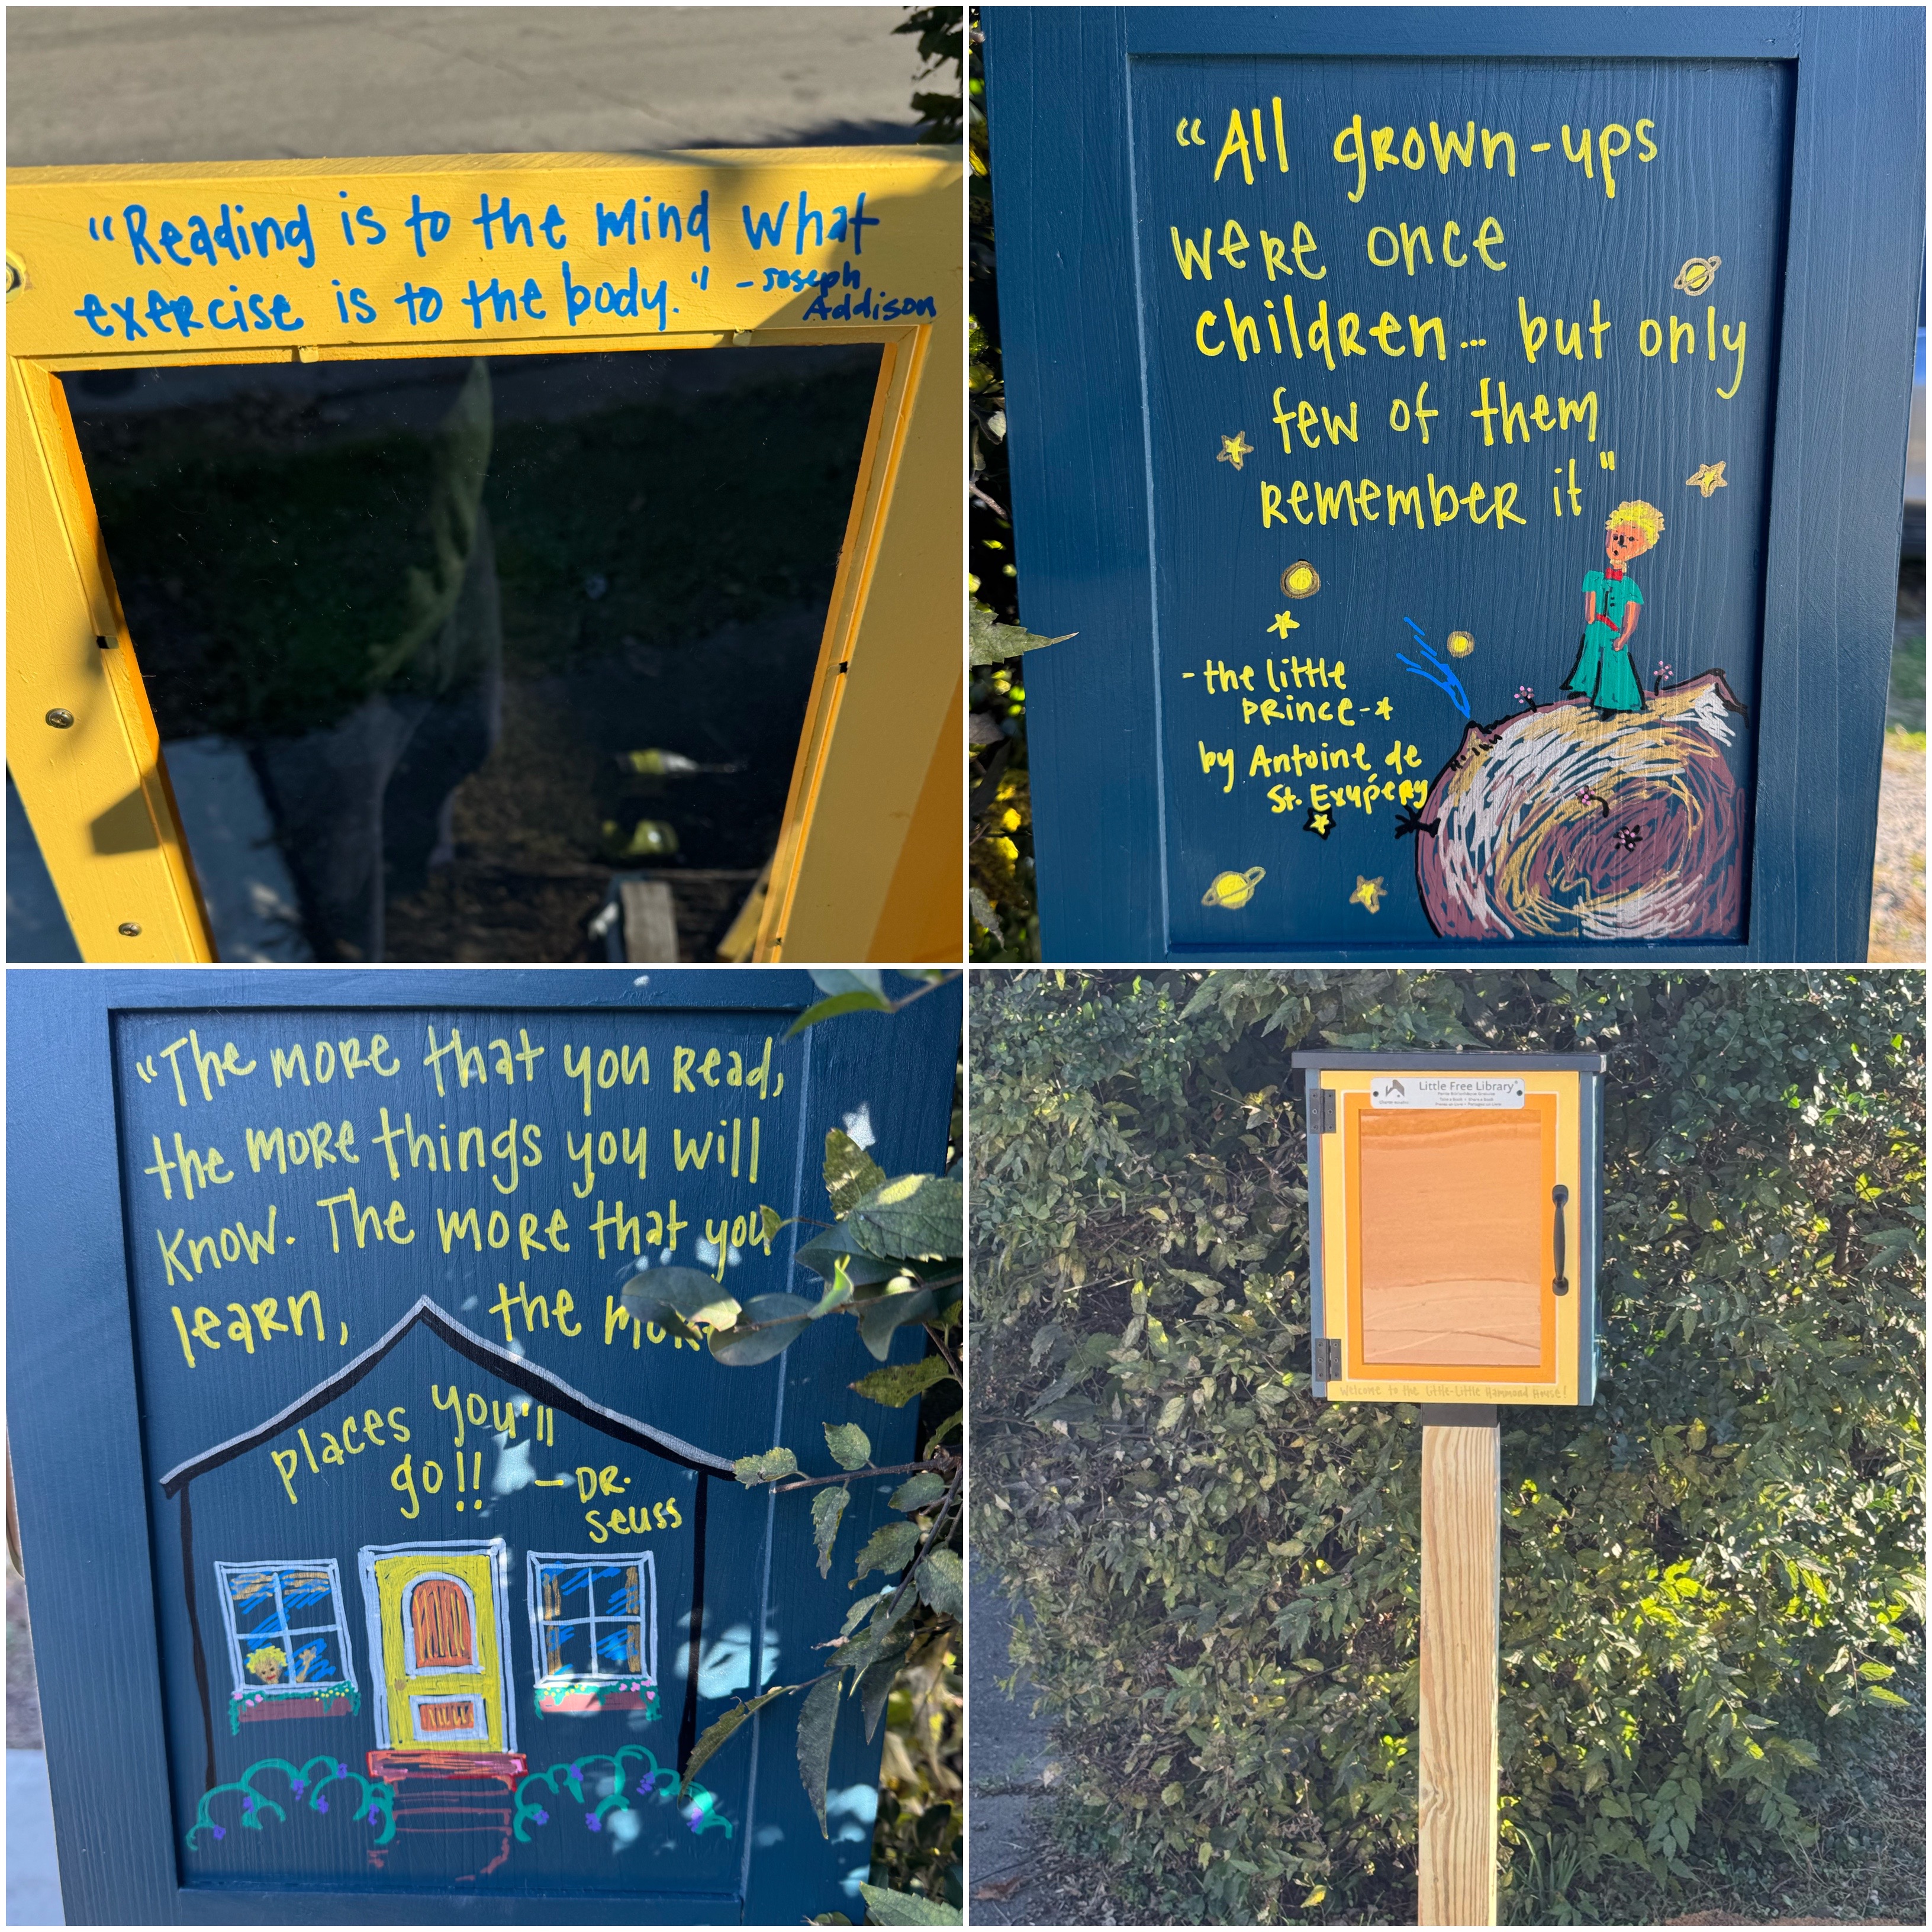 “Reading is to the mind what
exercise is to the body." - Joseph
Addison
“All grown-ups
were once
children... but only
few of them
remember it"
- the little
prince -
by Antoine de
St. Exupéry
“The more that you read,
the more things you will
know. The more that you
learn, the more
places you'll
go!! - DR.
Seuss
Little Free Library®
Take a Book • Share a Book
Welcome to the Little-Little Hammond House!